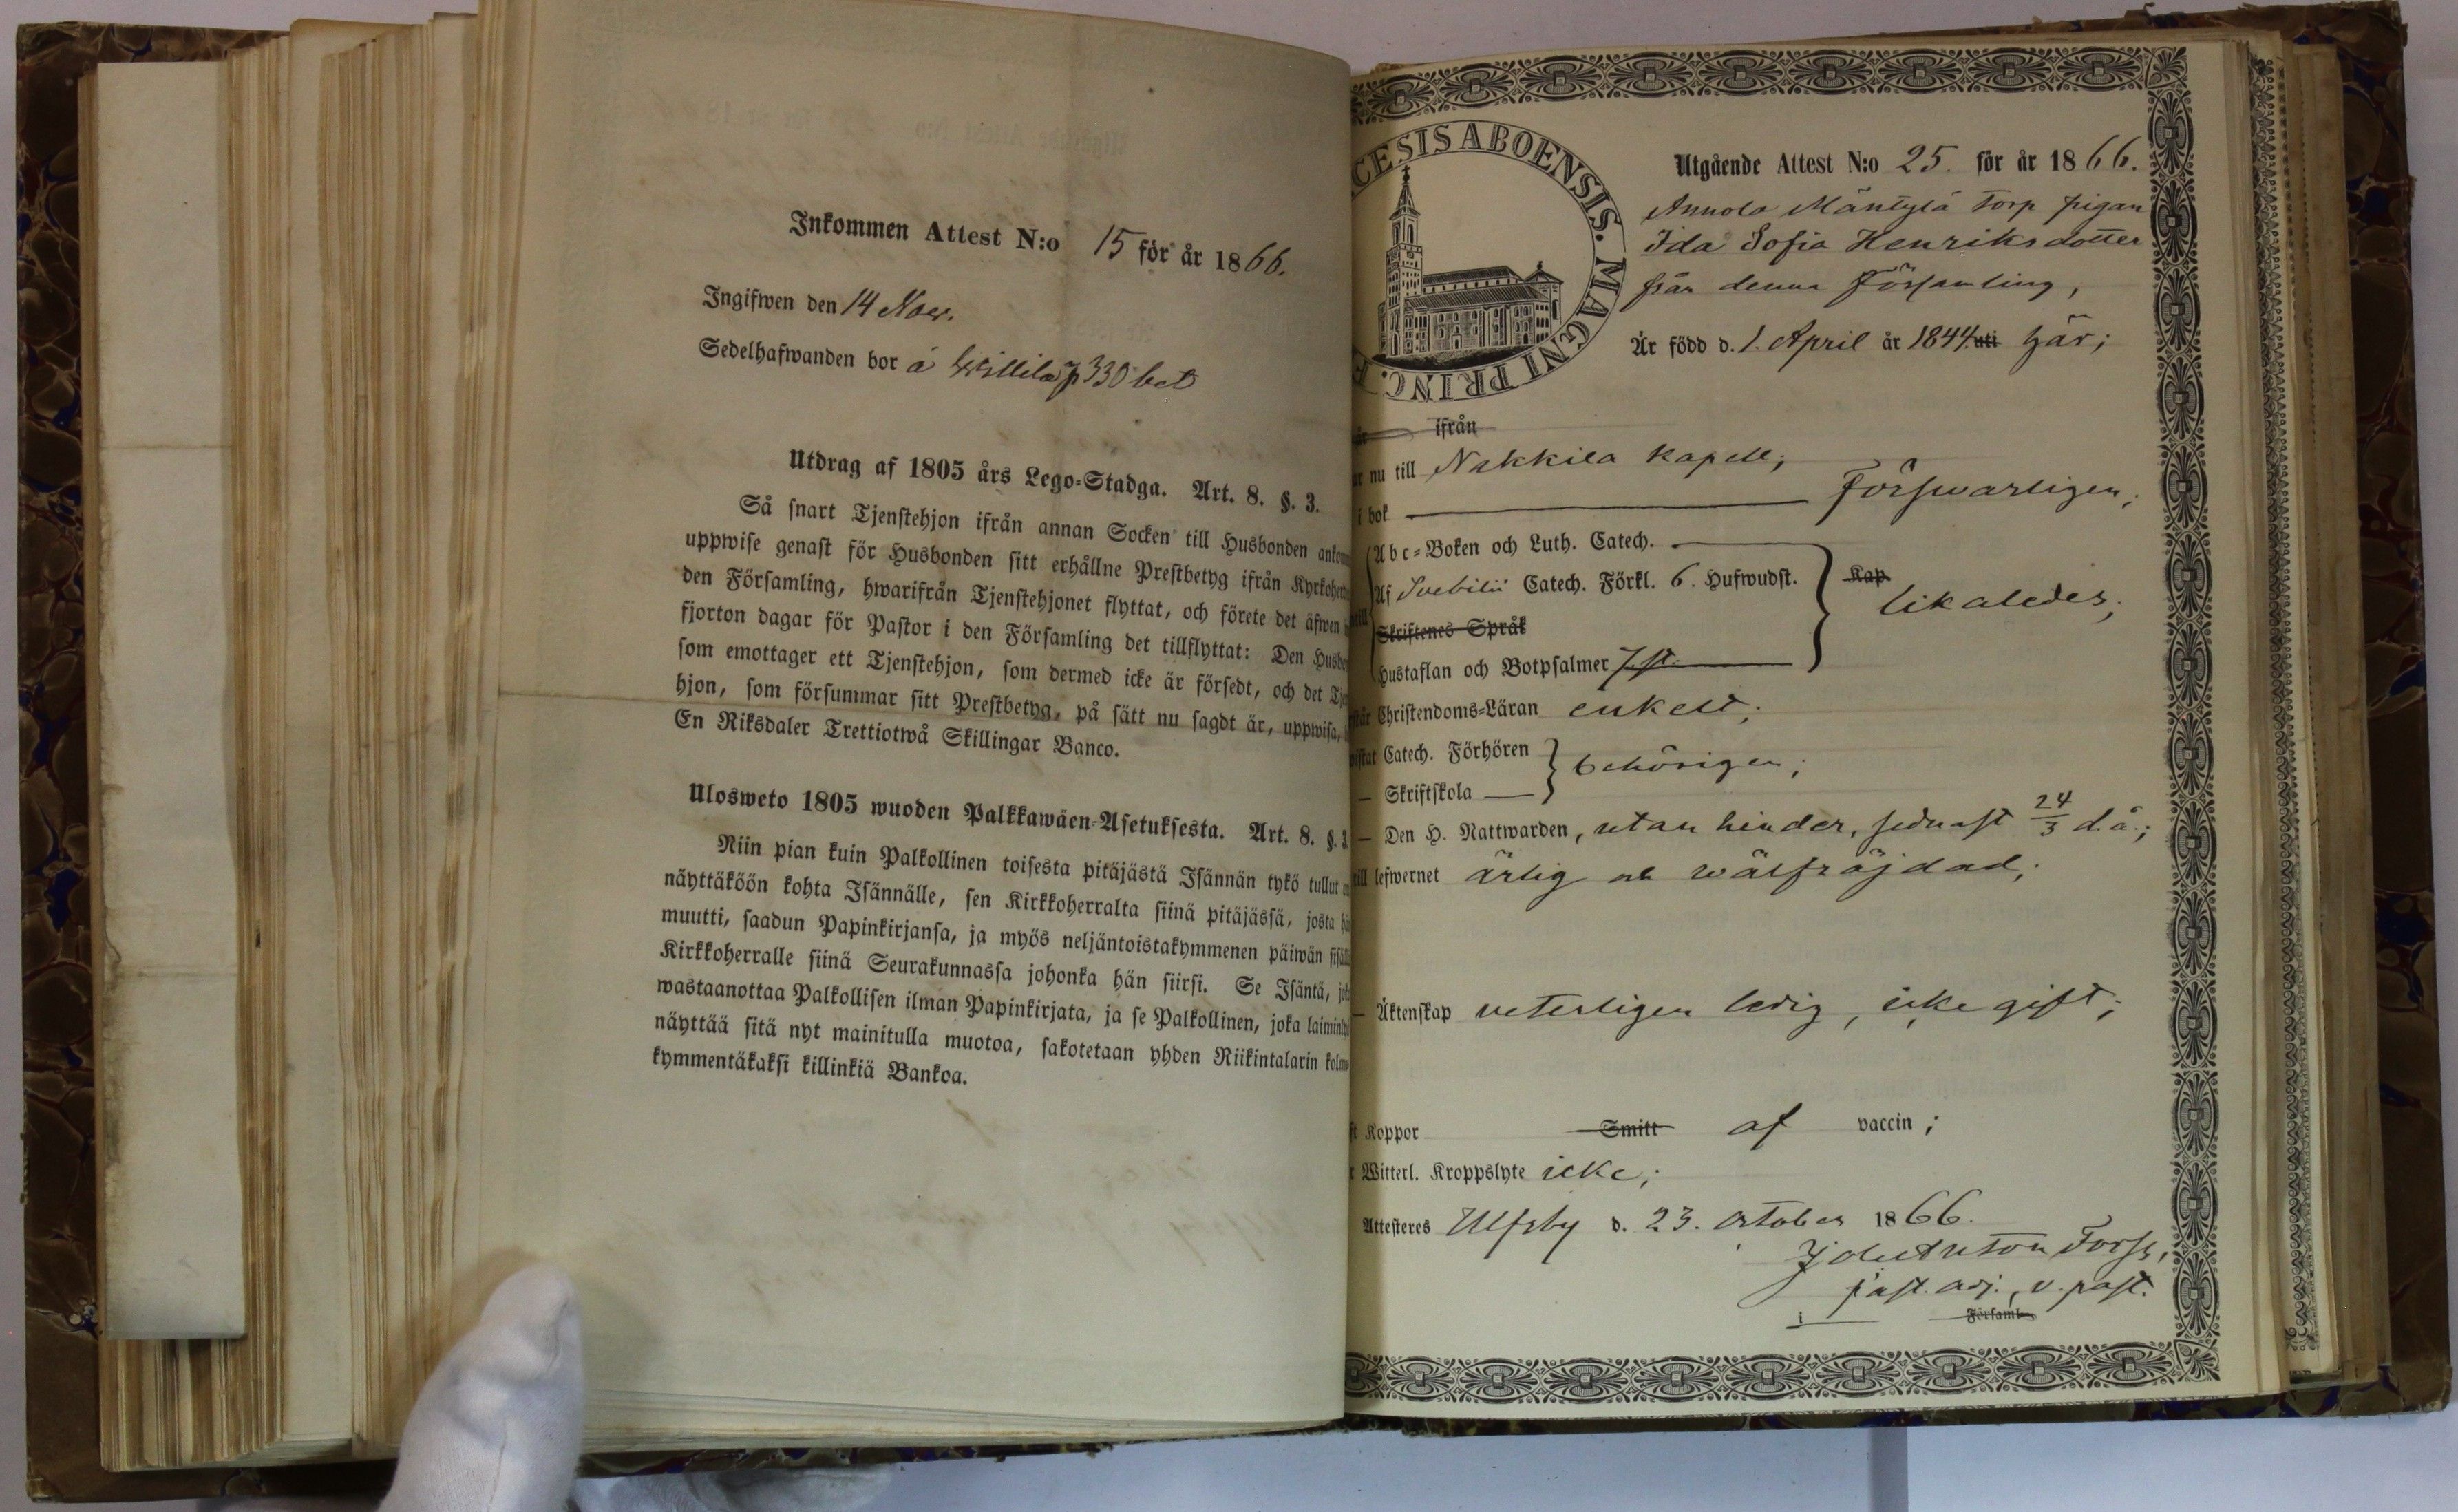 Inkommen Attest N:o 15 för år 1866.
Ingifwen den 14 Nov.
Sedelhafwanden bor å Willila p 330 bet
Utdrag af 1805 års Lego-Stadga. Art. 8. §. 3.
Så snart Tjenstehjon ifrån annan Socken till Husbonden
uppwise genast för Husbonden sitt erhållne Prestbetyg ifrån
den Församling, hwarifrån Tjenstehjonet flyttat, och förete det äfwen
fjorton dagar för Pastor i den Församling det tillflyttat: Den
som emottager ett Tjenstehjon, som dermed icke är försedt, och det
hjon, som försummar sitt Prestbetyg, på sätt nu sagdt är, uppwisa,
En Riksdaler Trettiotwå Skillingar Banco.
Ulosweto 1805 wuoden Palkkawäen-Asetuksesta. Art. 8. §. 3
Niin pian kuin Palkollinen toisesta pitäjästä Isännän tykö tullut
näyttäköön kohta Isännälle, sen Kirkkoherralta siinä pitäjässä, josta
muutti, saadun Papinkirjansa, ja myös neljäntoistakymmenen päiwän
Kirkkoherralle siinä Seurakunnassa johonka hän siirsi. Se Isäntä,
wastaanottaa Palkollisen ilman Papinkirjata, ja se Palkollinen, joka
näyttää sitä nyt mainitulla muotoa, sakotetaan yhden Riikintalarin
kymmentäkaksi killinkiä Bankoa.
CESIS ABOENSIS. MAGNI PRINC. F
Utgående Attest N:o 25. för år 1866.
Annola Mäntylä torp pigan
Ida Sofia Henriksdotter
från denna Församling,
Är född d. 1. April år 1844 uti här;
ifrån
nu till Nakkila kapell,
i bok Försvarligen;
Abc-Boken och Luth. Catech.
Af Svebilii Catech. Förkl. 6. Hufwudst. Kap
likaledes;
Skriftenes Språk
Hustaflan och Botpsalmer 7 st.
Christendoms-Läran enkelt;
Catech. Förhören
behörigen;
— Skriftskola
— Den H. Nattwarden, utan hinder, sednast 24/3 d.å.;
till lefwernet ärlig och wälfräjdad;
— Äktenskap veterligen ledig, icke gift;
Koppor Smitt af vaccin;
Witterl. Kroppslyte icke;
Attesteres Ulfsby d. 23. October 1866.
Joh Anton Forss,
past. adj., v. past.
i Församl.